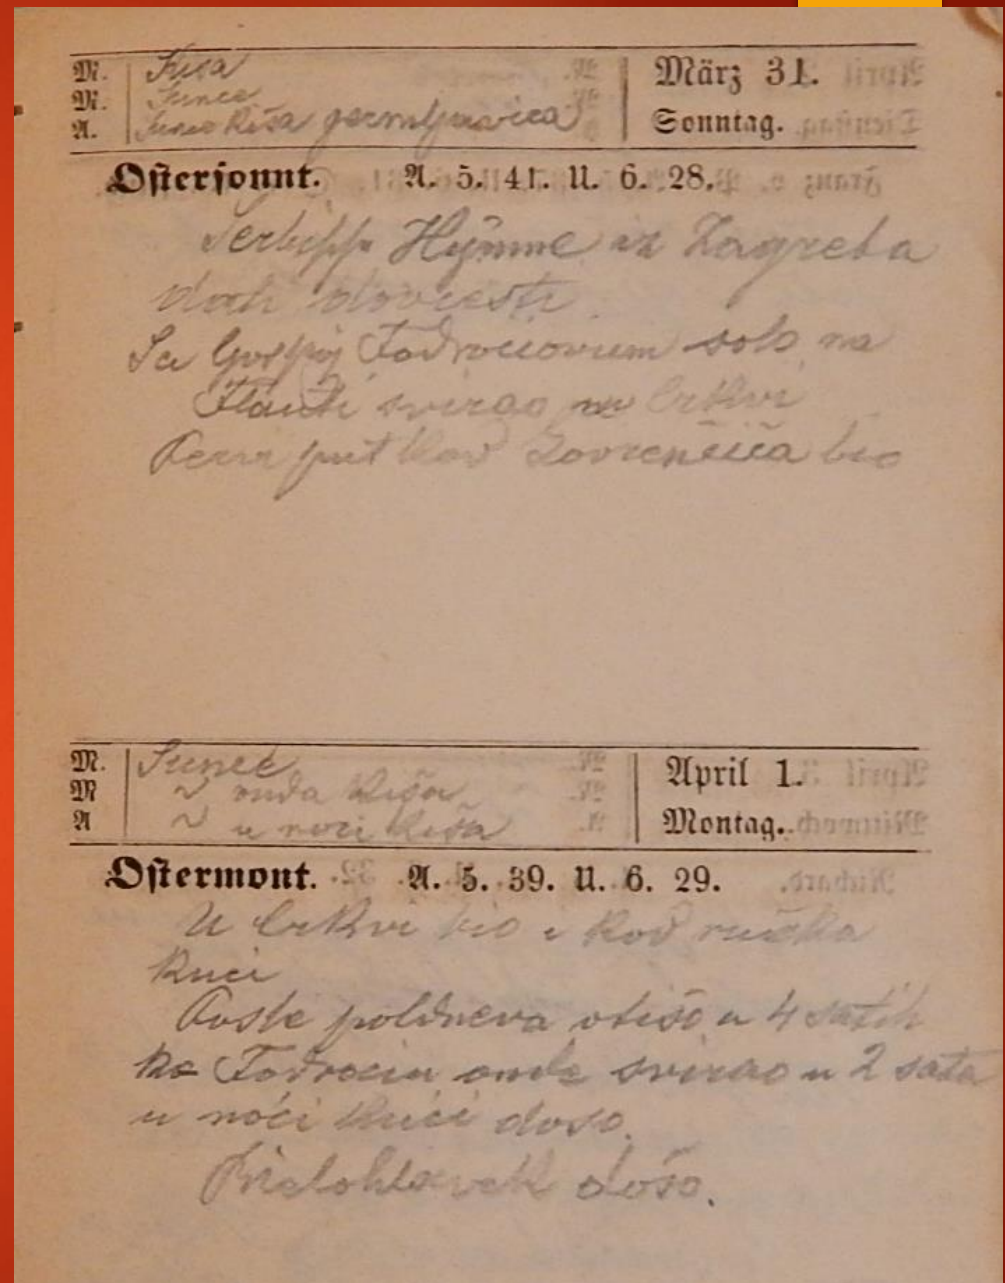 M. Kiša
M. Sunce
A. Sunce Kiša germljavica
März 31.
Sonntag.
Ostersonnt. A. 5. 41. U. 6. 28.
Hymne iz Zagreba
dovesti
Sa Gospoj solo na
Flauti svirao u Crkvi
Pervi put kod Lovrenčića bio
M. Sunce
M ~ onda Kiša
A ~ u noći kiša
April 1.
Montag.
Ostermont. A. 5. 39. U. 6. 29.
U Crkvi bio i kod ručka
kući
Posle poldneva otišo u 4 satih
ke onde svirao u 2 sata
u noći kući došo.
došo.